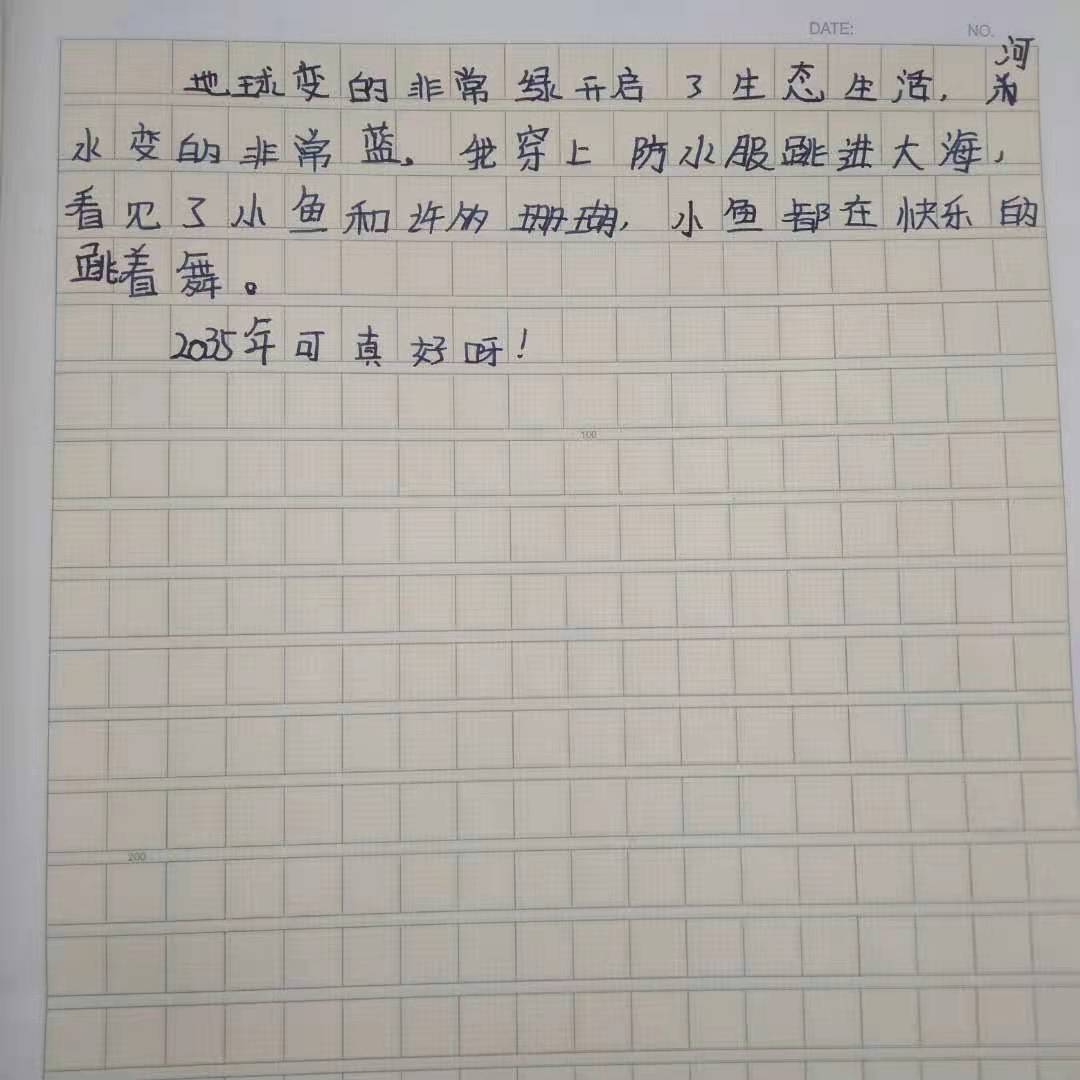 DATE:
NO.
地球变的非常绿开启了生态生活,河
水变的非常蓝。我穿上防水服跳进大海,
看见了小鱼和许多珊瑚,小鱼都在快乐的
跳着舞。
2035年可真好呀!
100
200